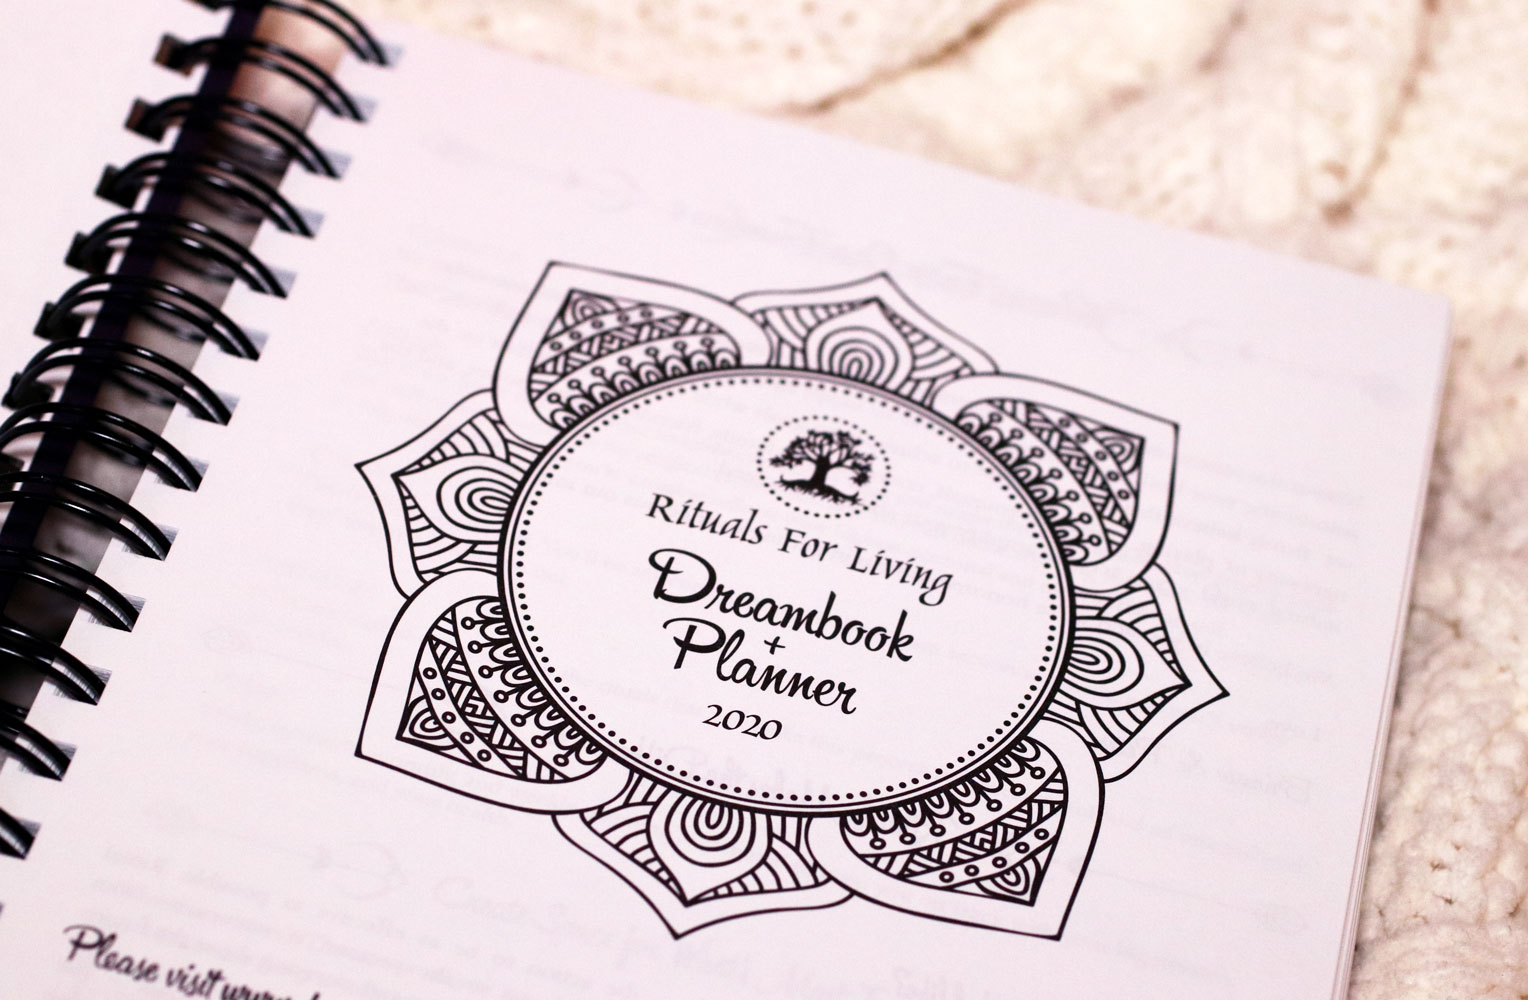 Rituals For Living
Dreambook
+
Planner
2020
Please visit www